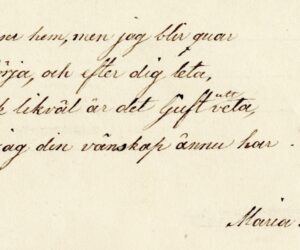 hem, men jag blir quar
och efter dig leta,
likväl är det ljuft att veta,
jag din vänskap ännu har.
Maria